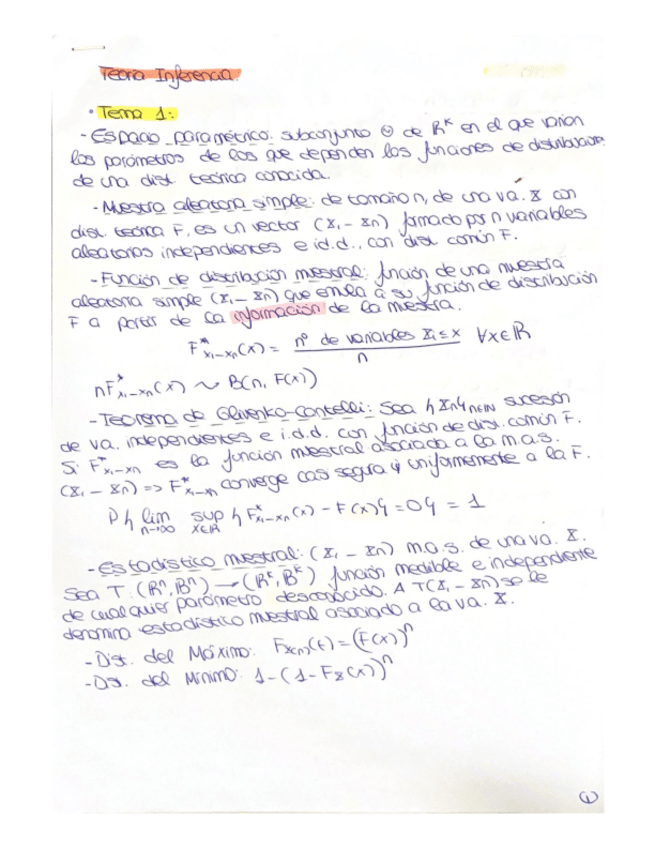 Teoría Inferencia.
• Tema 1:
- Espacio paramétrico: subconjunto Θ de R^k en el que varían
los parámetros de los que dependen las funciones de distribución
de una dist. teórica conocida.
- Muestra aleatoria simple: de tamaño n, de una va. X con
dist. teórica F, es un vector (X₁ - Xn) formado por n variables
aleatorias independientes e i.d.d., con dist común F.
- Función de distribución muestral: función de una muestra
aleatoria simple (X₁ - Xn) que emula a su función de distribución
F a partir de la información de la muestra.
F*x₁-xn(x) = nº de variables Xi ≤ x / n ∀x∈R
nF*x₁-xn(x) ~ B(n, F(x))
- Teorema de Glivenko-Cantelli: Sea {Xn}n∈N sucesión
de va. independientes e i.d.d. con función de dist. común F.
Si F*x₁-xn es la función muestral asociada a la m.a.s.
(X₁ - Xn) => F*x₁-xn converge casi segura y uniformemente a la F.
P{ lim n→∞ sup x∈R { F*x₁-xn(x) - F(x)} = 0} = 1
- Estadístico muestral: (X₁ - Xn) m.a.s. de una va. X.
Sea T: (R^n, B^n) → (R^k, B^k) función medible e independiente
de cualquier parámetro desconocido. A T(X₁ - Xn) se le
denomina estadístico muestral asociado a la va. X.
- Dist. del Máximo: Fx(n)(t) = (F(x))^n
- Dist. del Mínimo: 1 - (1 - Fx(x))^n
1